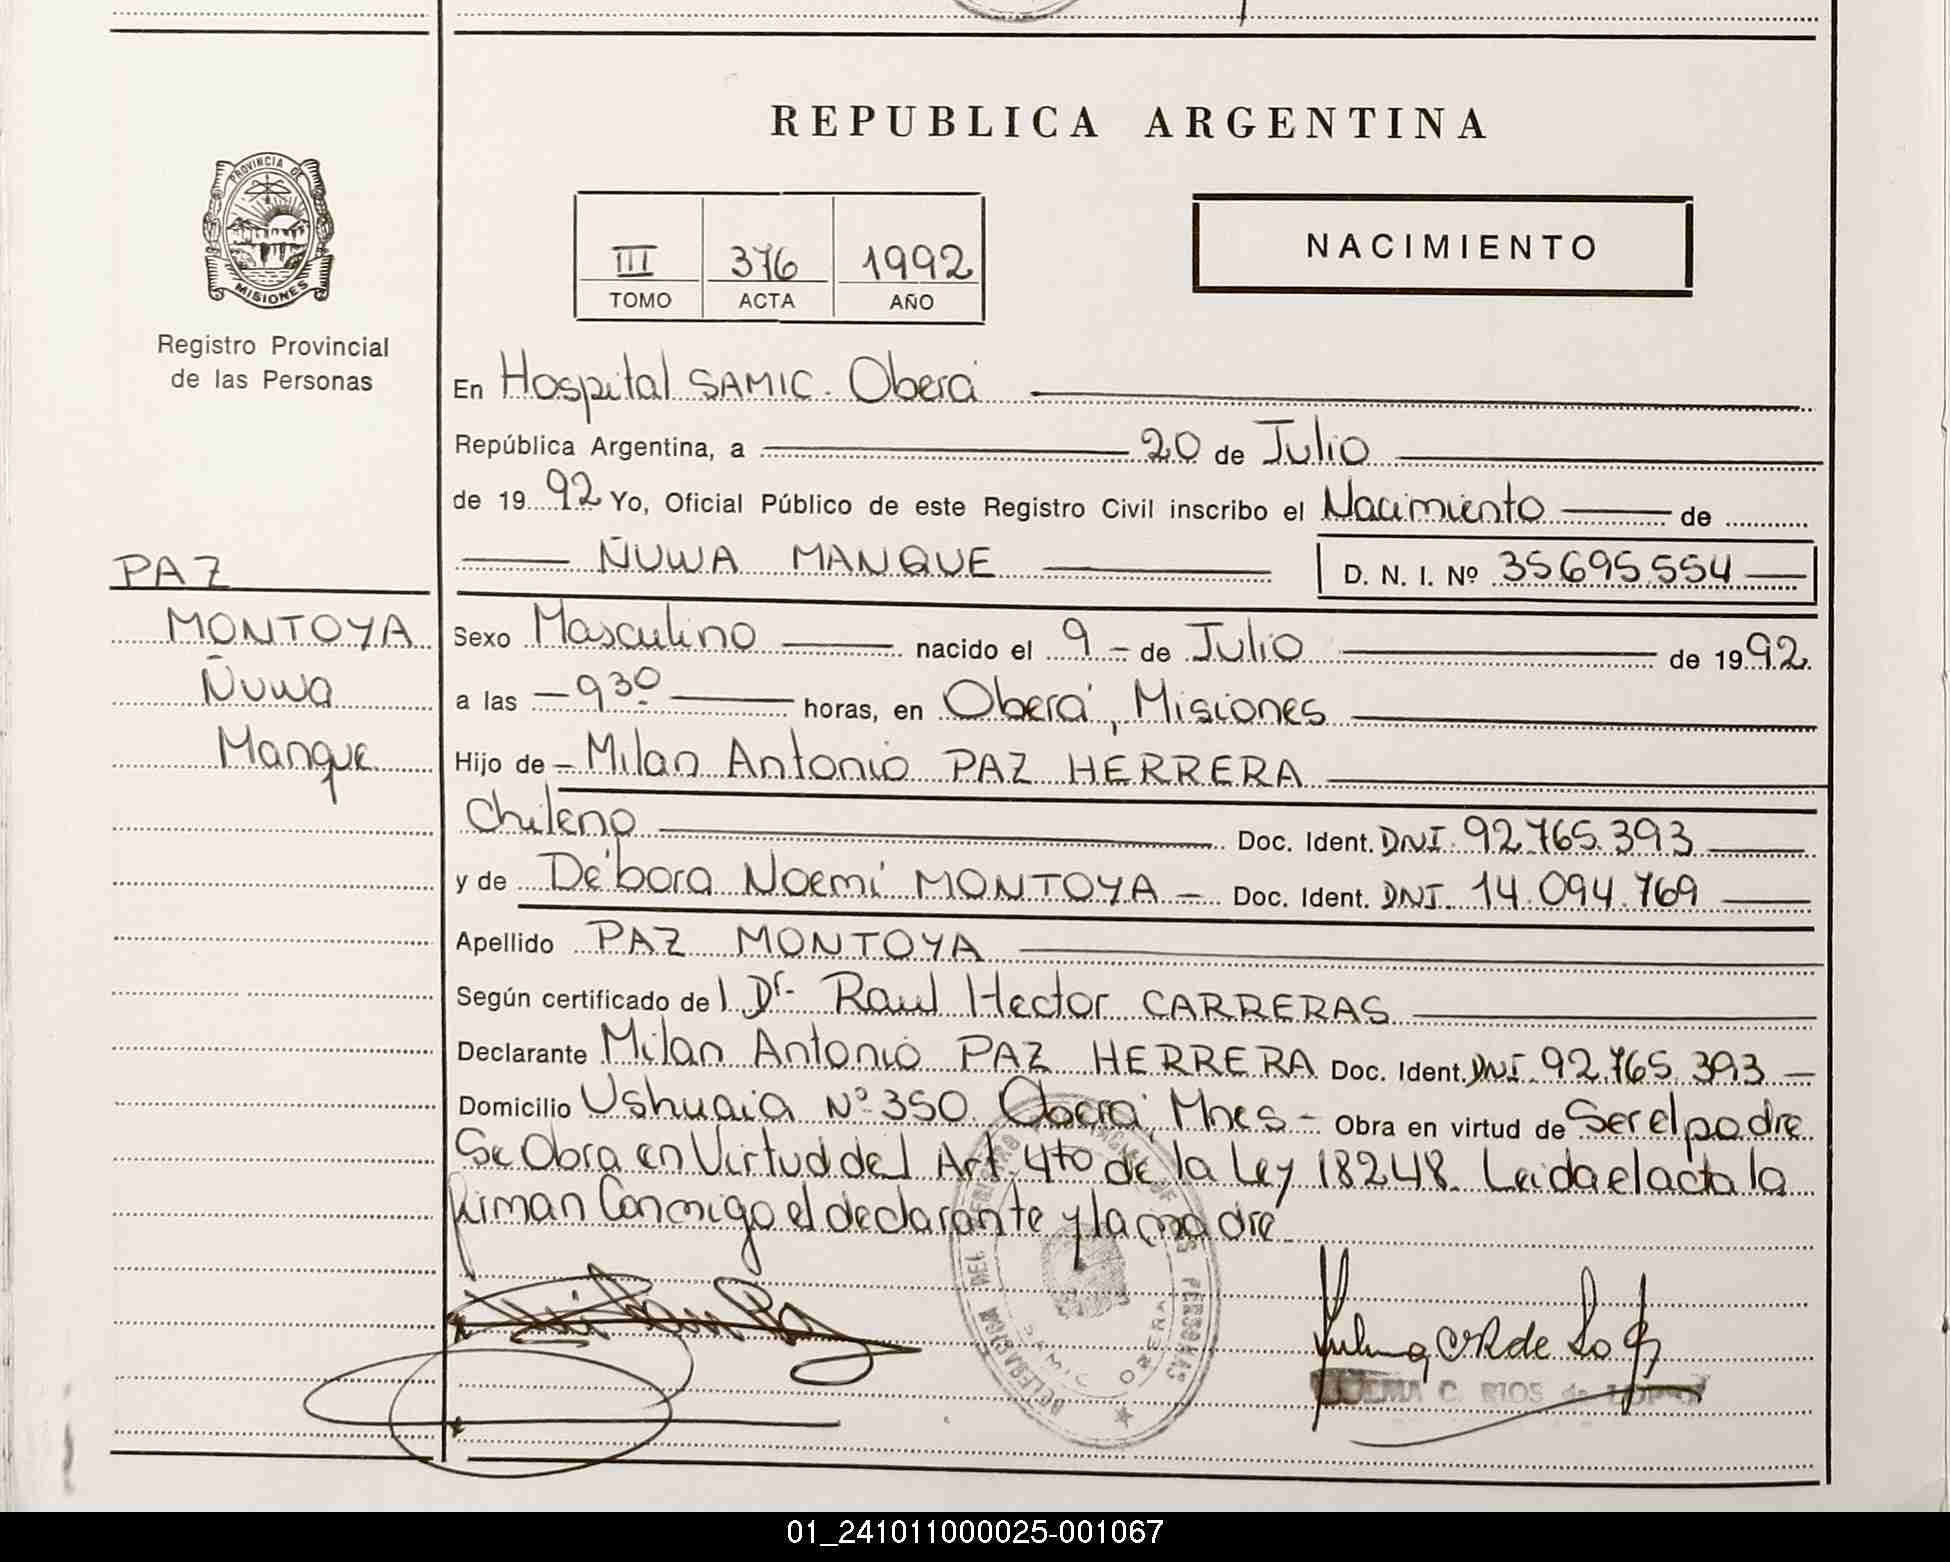 REPUBLICA ARGENTINA
PROVINCIA DE
MISIONES
Registro Provincial
de las Personas
III 376 1992
TOMO ACTA AÑO
NACIMIENTO
En Hospital SAMIC. Oberá
República Argentina, a 20 de Julio
de 19 92 Yo, Oficial Público de este Registro Civil inscribo el Nacimiento de
ÑUWA MANQUE D. N. I. Nº 35695554
PAZ
MONTOYA
Ñuwa
Manque
Sexo Masculino nacido el 9 - de Julio de 19 92.
a las - 9 30 horas, en Oberá, Misiones
Hijo de - Milan Antonio PAZ HERRERA
Chileno Doc. Ident. DNI. 92.765.393
y de Débora Noemí MONTOYA - Doc. Ident. DNI. 14.094.769
Apellido PAZ MONTOYA
Según certificado de l Dr. Raul Hector CARRERAS
Declarante Milan Antonio PAZ HERRERA Doc. Ident. DNI. 92.765.393 -
Domicilio Ushuaia Nº 350. Oberá, Mnes - Obra en virtud de Ser el padre.
Se Obra en Virtud del Art. 4to de la Ley 18248. Leida el acta la
firman Conmigo el declarante y la madre
DELEGACION DEL REGISTRO DE LAS PERSONAS
SAMIC OBERA
C. RIOS de LOPEZ
01_241011000025-001067